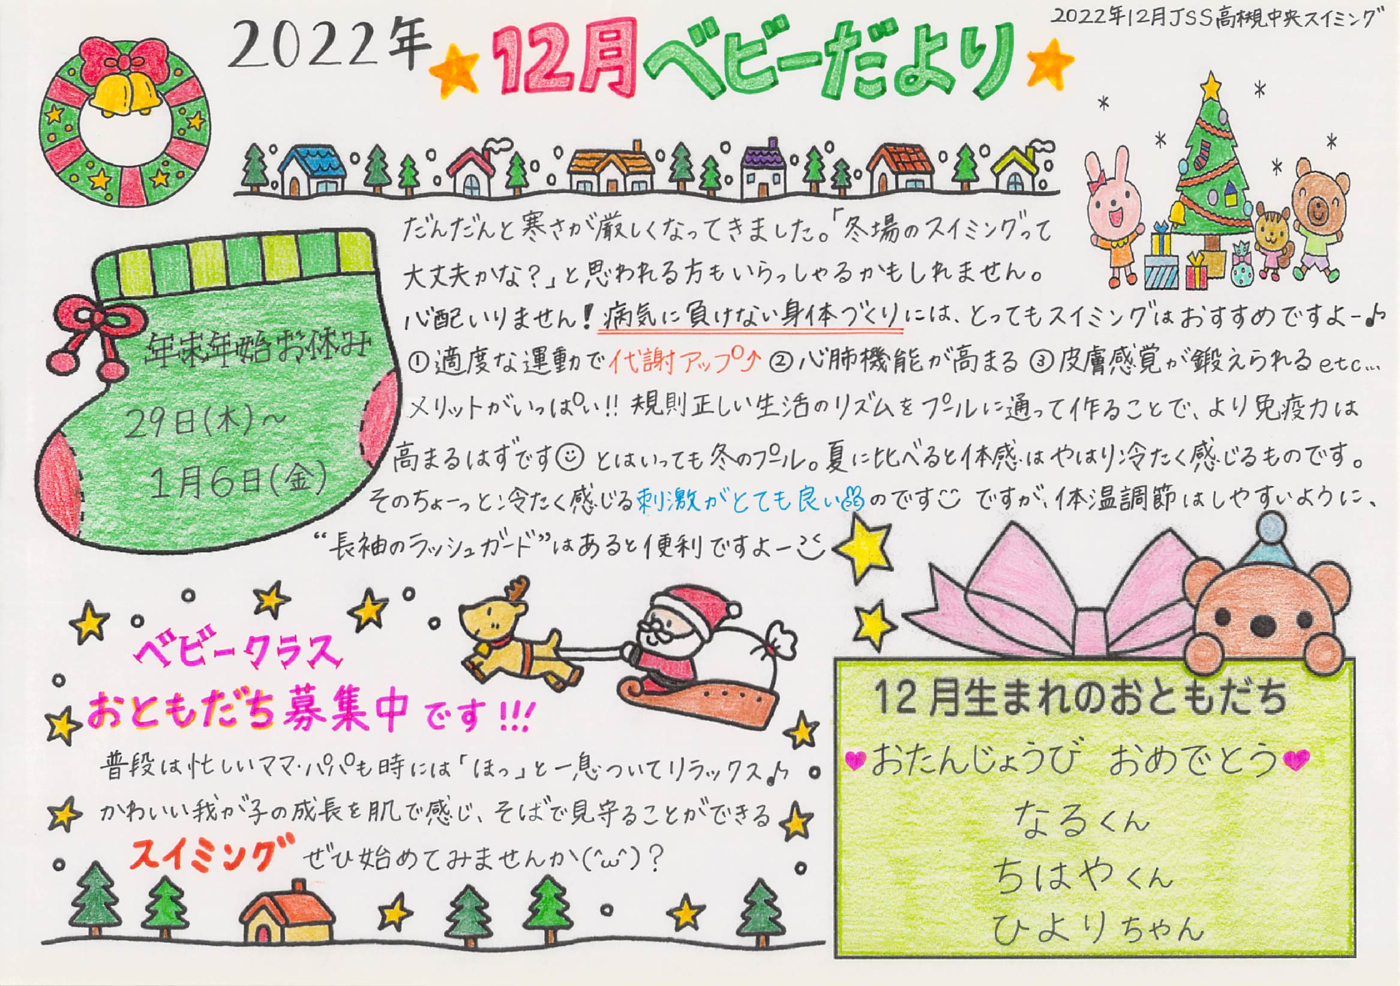 2022年12月JSS高槻中央スイミング
2022年 12月ベビーだより
だんだんと寒さが厳しくなってきました。「冬場のスイミングって
大丈夫かな?」と思われる方もいらっしゃるかもしれません。
心配いりません!病気に負けない身体づくりには、とってもスイミングはおすすめですよー♪
①適度な運動で代謝アップ↗②心肺機能が高まる③皮膚感覚が鍛えられるetc...
メリットがいっぱい!!規則正しい生活のリズムをプールに通って作ることで、より免疫力は
高まるはずです☺とはいっても冬のプール。夏に比べると体感はやはり冷たく感じるものです。
そのちょーっと冷たく感じる刺激がとても良いのです ですが、体温調節はしやすいように、
"長袖のラッシュガード"はあると便利ですよー
年末年始お休み
29日(木)〜
1月6日(金)
ベビークラス
おともだち募集中です!!!
普段は忙しいママ・パパも時には「ほっ」と一息ついてリラックス♪
かわいい我が子の成長を肌で感じ、そばで見守ることができる
スイミング ぜひ始めてみませんか(^ω^)?
12月生まれのおともだち
♥おたんじょうび おめでとう♥
なるくん
ちはやくん
ひよりちゃん